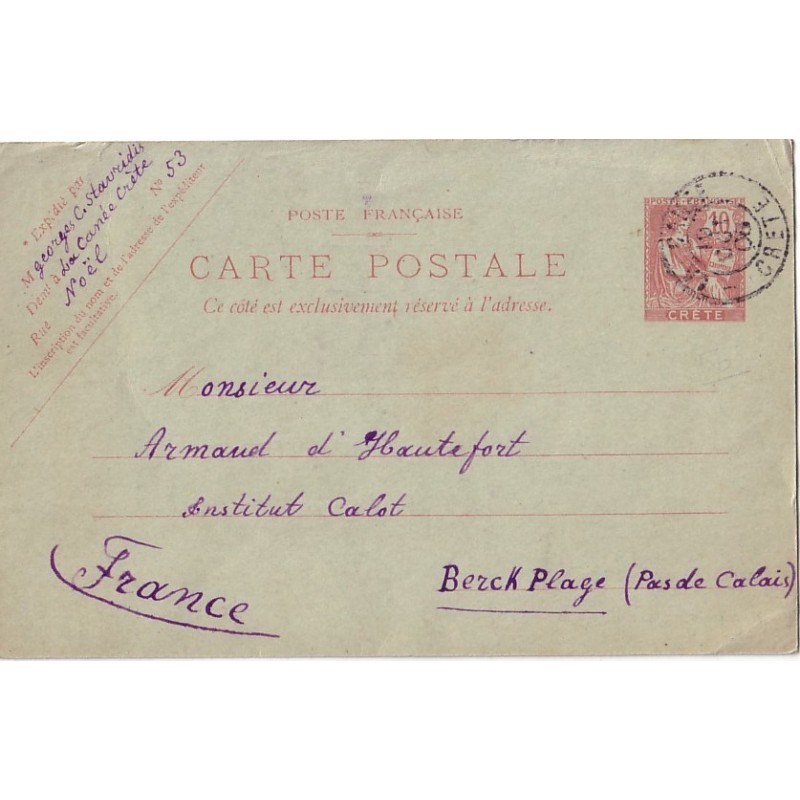 * Expédié par
M Georges C. Stavridis
Demt à La Canée Crète
Rue Noël No 53
L'inscription du nom et de l'adresse de l'expéditeur
est facultative.
POSTE FRANÇAISE
CARTE POSTALE
Ce côté est exclusivement réservé à l'adresse.
POSTE FRANÇAISE
10
CRÈTE
CRETE
Monsieur
Armand d'Hautefort
Institut Calot
Berck Plage (Pas de Calais)
France